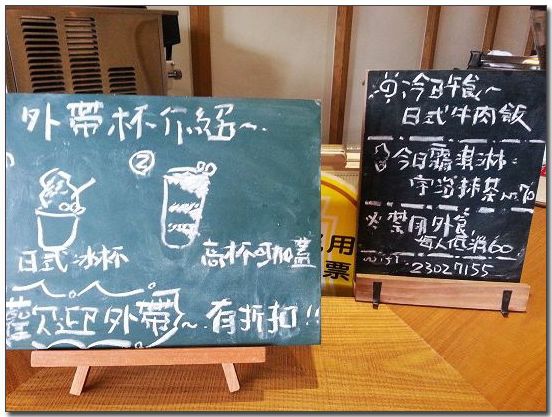 外帶杯介紹~
②
日式冰杯
高杯可加蓋
歡迎外帶~有折扣!!
今日午食~
日式牛肉飯
今日霜淇淋:
宇治抹茶 no.70
※禁用外食,
每人低消60
23027155
用
票